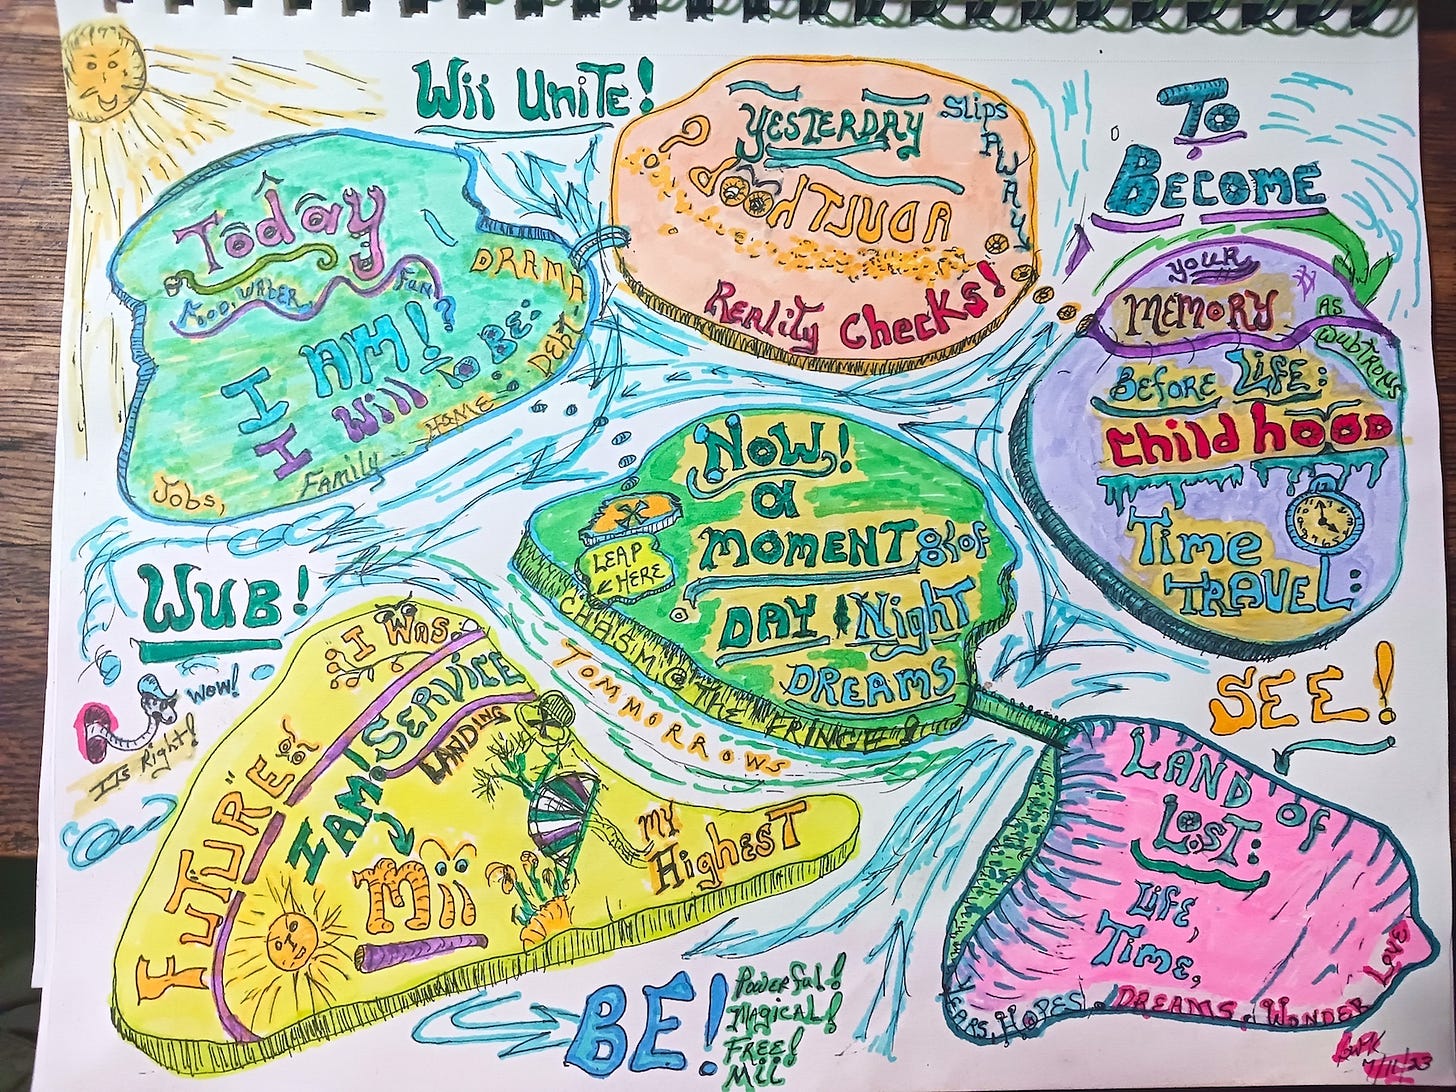 Wii UNiTE!
YESTERDAY
Slips
AWAY
ADULTHOOD
Reality Checks!
To
BECOME
Today
FOOD, WATER,
Fun?
DRAMA
DEBT
I AM!
I Will To Be:
HOME
Family
Jobs,
YOUR
MEMORY
AS
WUBTRONS
BEFORE LiFE:
Childhood
Time
TRAVEL:
NOW!
a
MOMENT of
DAY Night
DREAMS
LEAP
HERE
CHASM OF THE FRINGE
TOMMORROWS
WUB!
WOW!
ITs Right!
SEE!
I WAS:
SERVICE
LANDING
FUTURE of
I AM!
Mii
MY
HigHEST
LAND of
LOST:
LiFE,
TimE,
HOPES, DREAMS, WONDER
LOVE
BE!
POWERFUL!
MAgiCAL!
FREE!
Mii
7/11/23